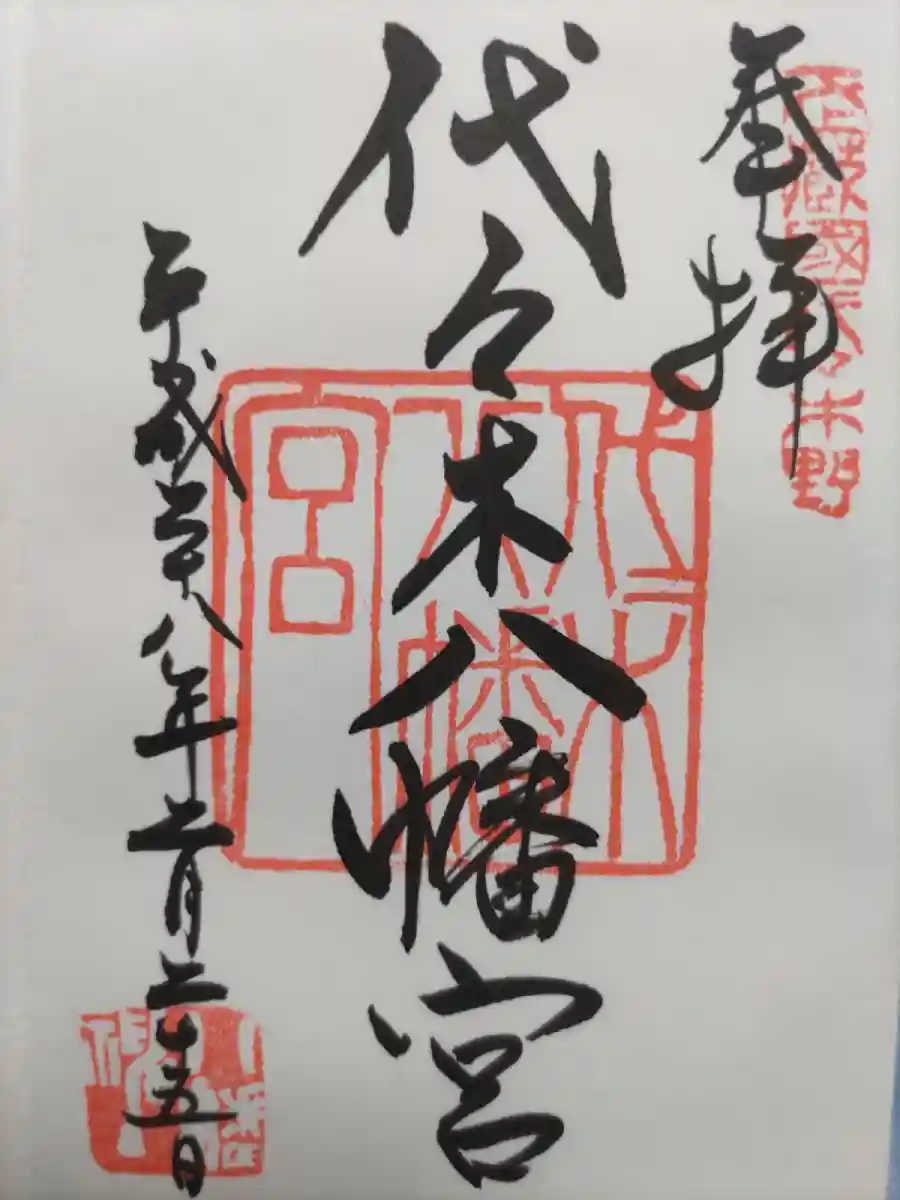 武蔵國代々木野
奉拝
代々木八幡宮
代々木八幡宮
平成二十八年二月二十五日